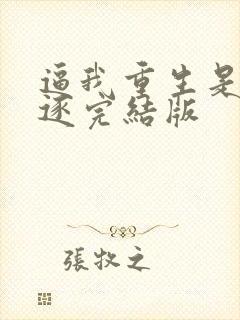 逼我重生是
逐完結版
張牧之